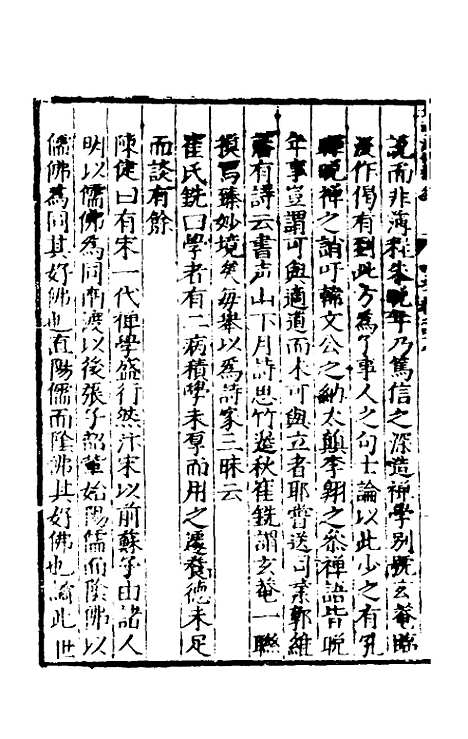 說而非濂程朱晚年乃篤信之深造禪學別號玄菴臨
沒作偈有到此方爲了事人之句士論以此少之有孔
暉晚禪之誚吁韓文公之納太顚李翱之叅禪語皆晚
年事豈謂可與適道而未可與立者耶嘗送郭維
有詩云書声山下月詩思竹邊秋崔銑謂玄菴一聯
摸寫臻妙境矣每舉以爲詩家三昧云
崔氏銑曰學者有二病積學未厚而用之遽養德未足
而談有餘
陳健曰有宋一代禪學盛行然汴宋以前蘇子由諸人
明以儒佛爲同南渡以後張子韶輩始陽儒而陰佛以
儒佛爲同其好佛也直陽儒而陰佛其好佛也詭此世